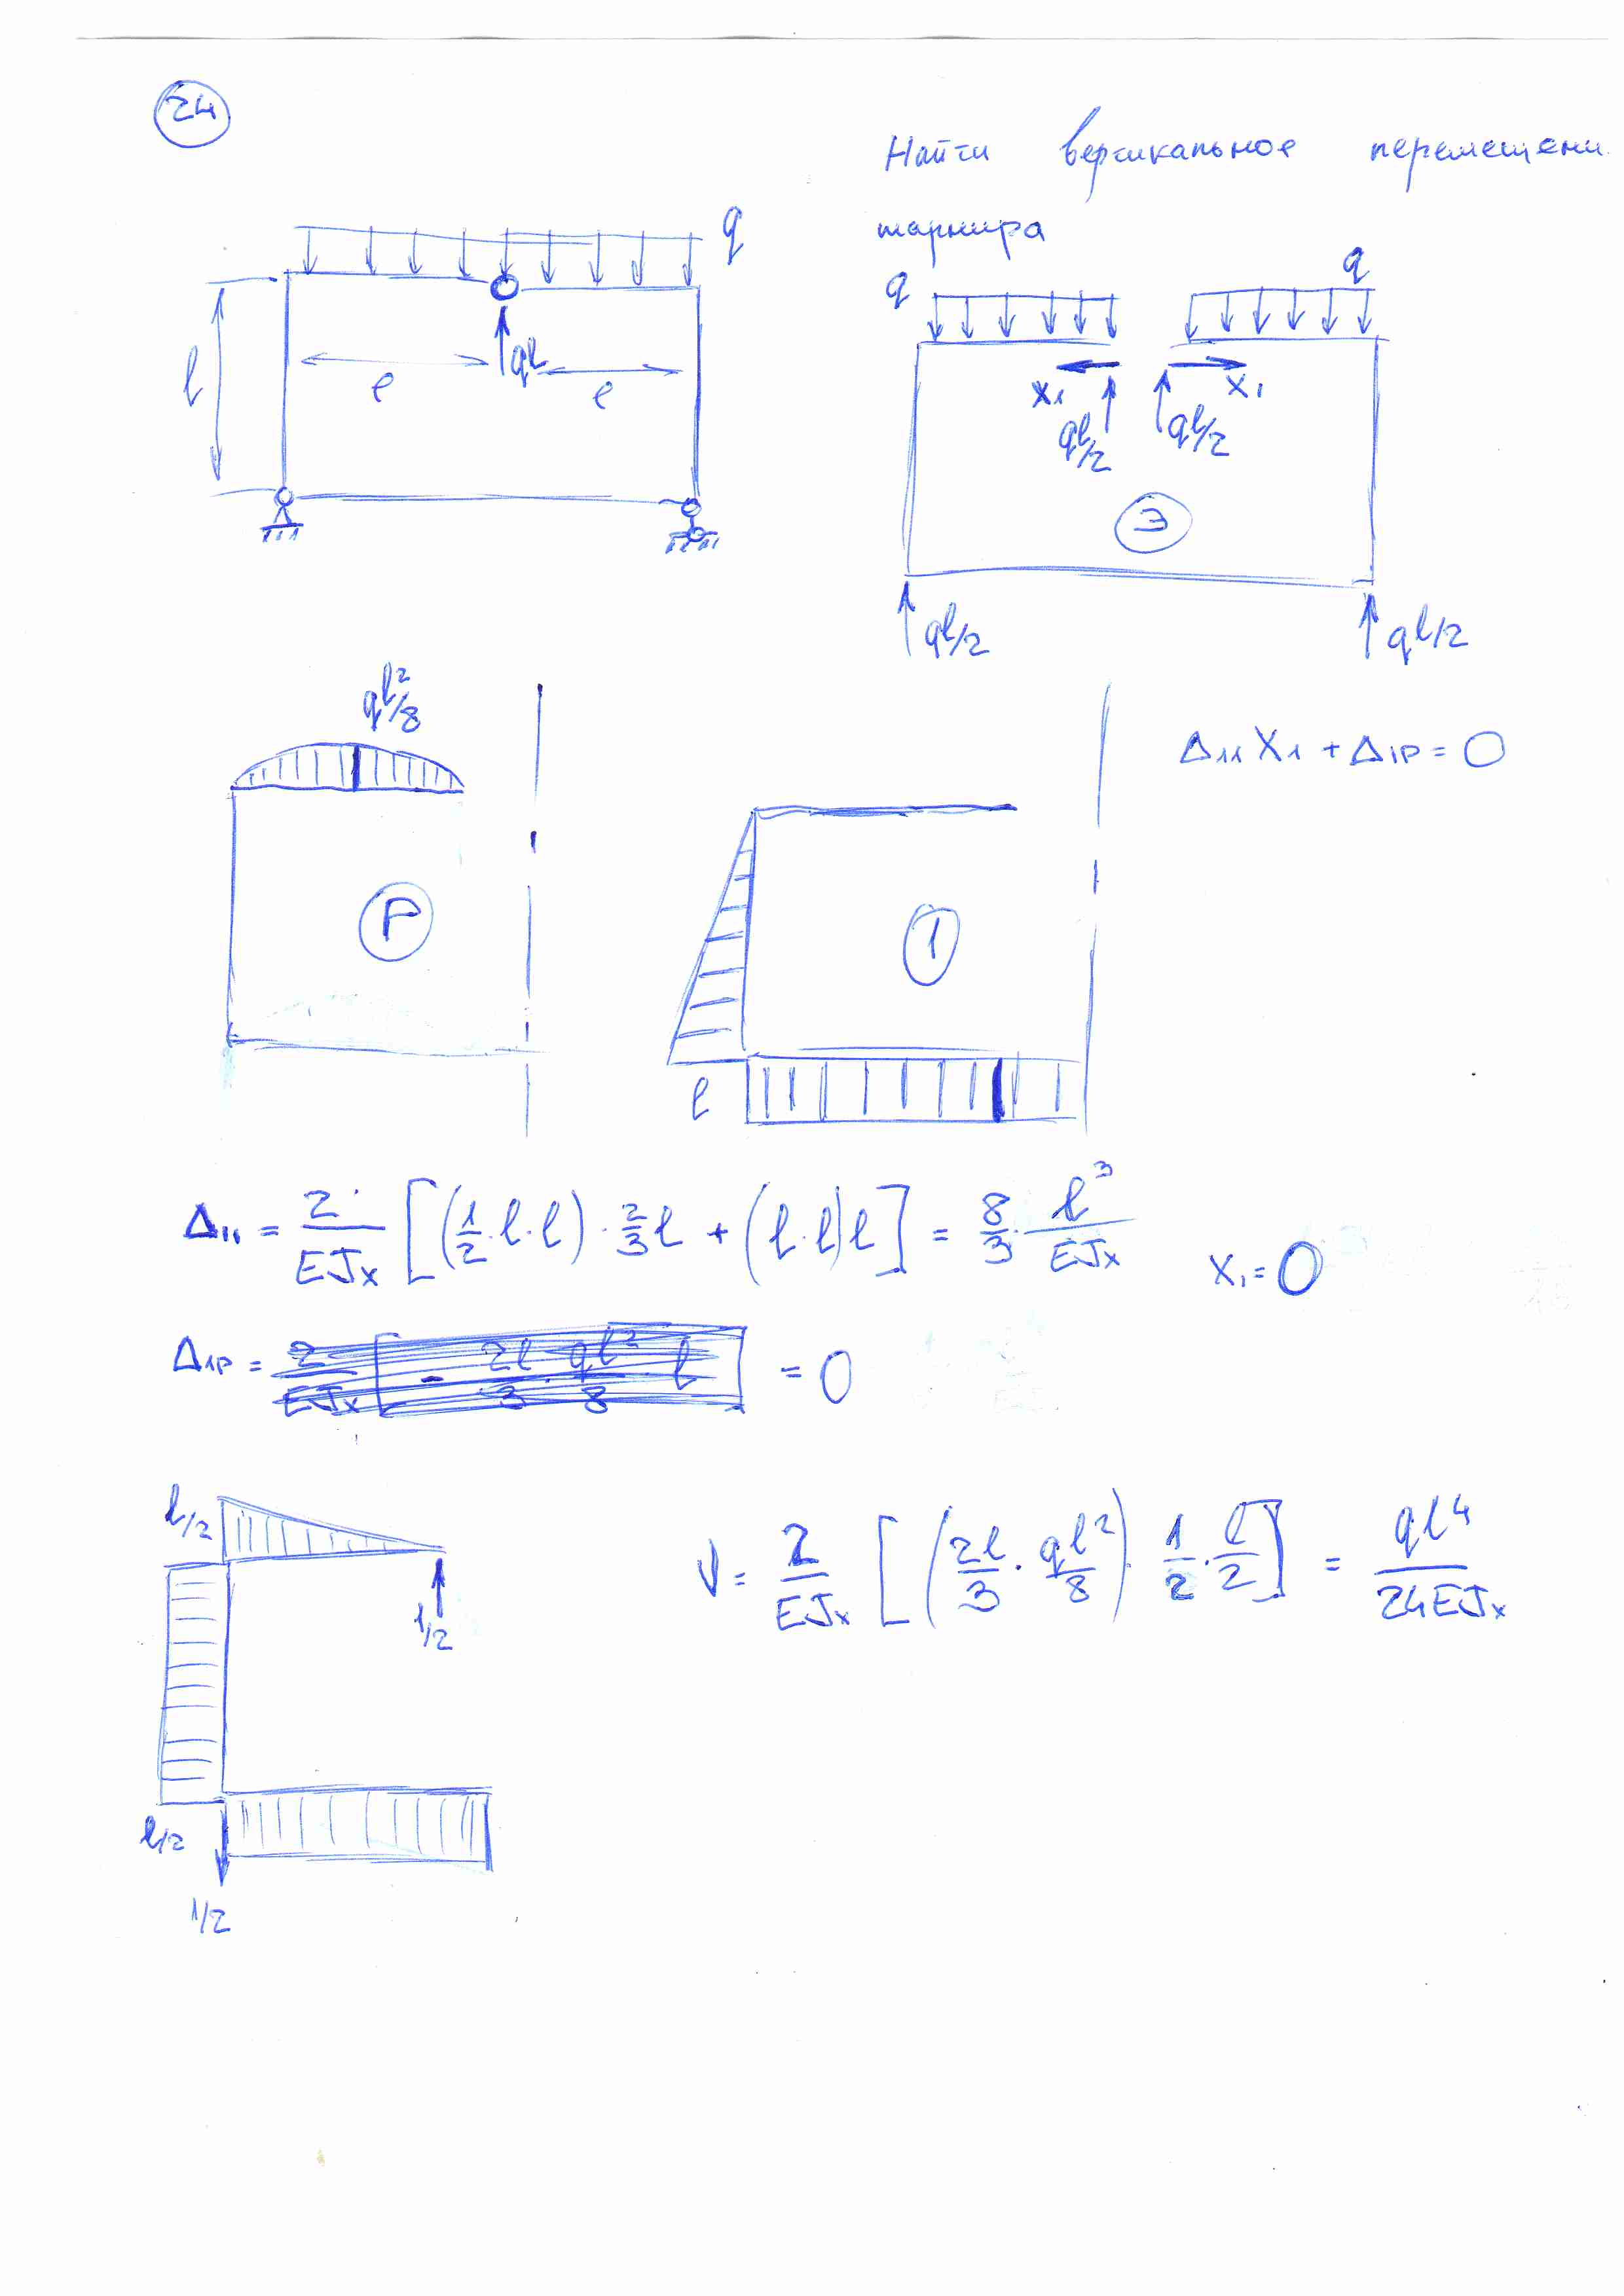 24
Найти вертикальное перемещени
шарнира
q
l
ql
l
l
q
q
X₁
X₁
ql/2
ql/2
Э
ql/2
ql/2
ql²/8
P
Δ₁₁X₁ + Δ₁P = 0
1
l
Δ₁₁ = 2/EJx [(1/2·l·l)·2/3 l + (l·l)l] = 8/3·l³/EJx
X₁ = 0
Δ₁P = = 0
l/2
1/2
V = 2/EJx [(2l/3·ql²/8)·1/2·l/2] = ql⁴/24EJx
l/2
1/2